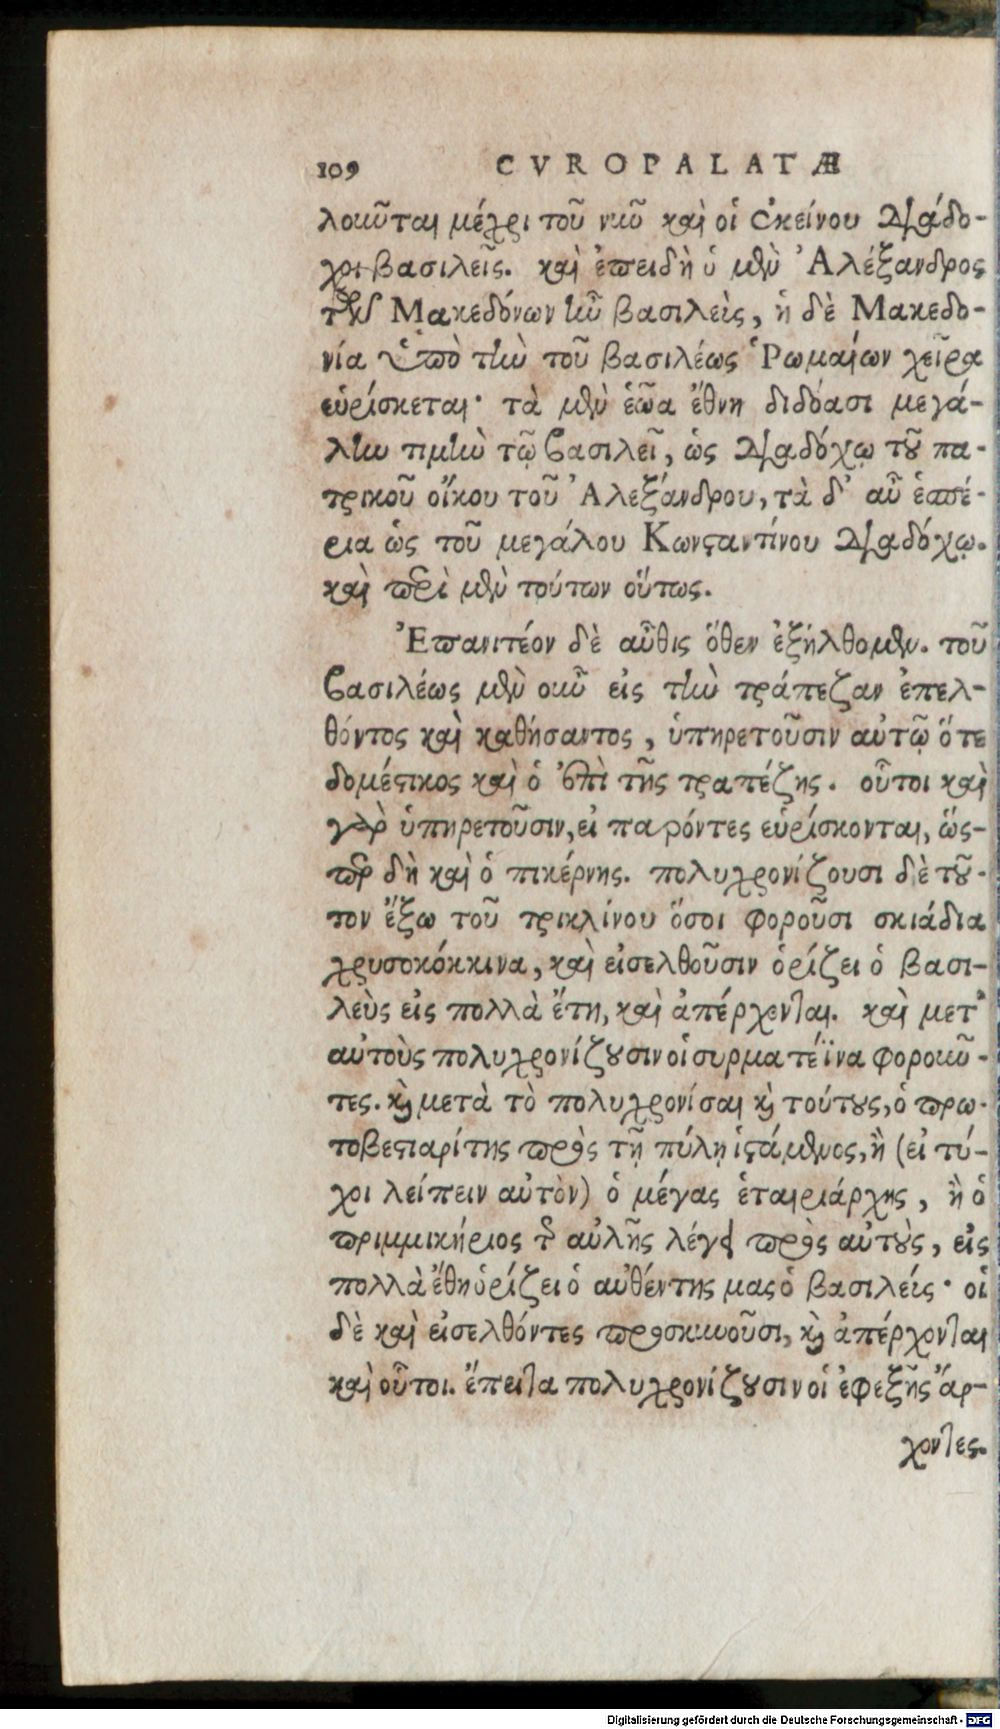 109 CVROPALATÆ
λοῦνται μέχρι τοῦ νῦν καὶ οἱ ἐκείνου διάδο-
χοι βασιλεῖς. καὶ ἐπειδὴ ὁ μὲν Ἀλέξανδρος
τῶν Μακεδόνων ἦν βασιλεὺς, ἡ δὲ Μακεδο-
νία ὑπὸ τὴν τοῦ βασιλέως Ῥωμαίων χεῖρα
εὑρίσκεται· τὰ μὲν ἑῶα ἔθνη διδόασι μεγά-
λην τιμὴν τῷ βασιλεῖ, ὡς διαδόχῳ τοῦ πα-
τρικοῦ οἴκου τοῦ Ἀλεξάνδρου, τὰ δ' αὖ ἑσπέ-
ρια ὡς τοῦ μεγάλου Κωνσταντίνου διαδόχῳ.
καὶ περὶ μὲν τούτων οὕτως.
Ἐπανιτέον δὲ αὖθις ὅθεν ἐξήλθομεν. τοῦ
βασιλέως μὲν οὖν εἰς τὴν τράπεζαν ἐπελ-
θόντος καὶ καθήσαντος, ὑπηρετοῦσιν αὐτῷ ὅτε
δομέστικος καὶ ὁ ἐπὶ τῆς τραπέζης. οὗτοι καὶ
γὰρ ὑπηρετοῦσιν, εἰ παρόντες εὑρίσκονται, ὥσ-
περ δὴ καὶ ὁ πικέρνης. πολυχρονίζουσι δὲ τοῦ-
τον ἔξω τοῦ τρικλίνου ὅσοι φοροῦσι σκιάδια
χρυσοκόκκινα, καὶ εἰσελθοῦσιν ὁρίζει ὁ βασι-
λεὺς εἰς πολλὰ ἔτη, καὶ ἀπέρχονται. καὶ μετ'
αὐτοὺς πολυχρονίζουσιν οἱ συρματέϊνα φοροῦν-
τες. καὶ μετὰ τὸ πολυχρονίσαι καὶ τούτους, ὁ πρω-
τοβεστιαρίτης πρὸς τῇ πύλῃ ἱστάμενος, ἢ (εἰ τύ-
χοι λείπειν αὐτὸν) ὁ μέγας ἑταιριάρχης, ἢ ὁ
πριμμικήριος τῆς αὐλῆς λέγει πρὸς αὐτοὺς, εἰς
πολλὰ ἔθη ὁρίζει ὁ αὐθέντης μας ὁ βασιλείς· οἱ
δὲ καὶ εἰσελθόντες προσκυνοῦσι, καὶ ἀπέρχονται
καὶ οὗτοι. ἔπειτα πολυχρονίζουσιν οἱ ἐφεξῆς ἄρ-
χοντες.
Digitalisierung gefördert durch die Deutsche Forschungsgemeinschaft - DFG